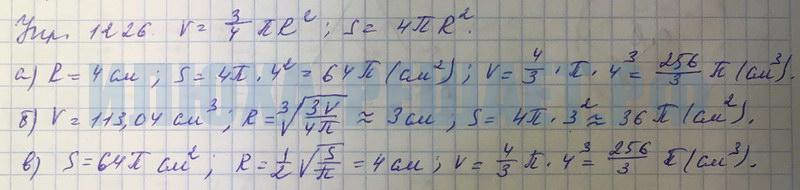 Упр. 1226. V = 3/4 πR²; S = 4πR².
а) R = 4 см; S = 4π · 4² = 64π (см²); V = 4/3 · π · 4³ = 256/3 π (см³).
б) V = 113,04 см³; R = ∛(3V/4π) ≈ 3 см; S = 4π · 3² ≈ 36π (см²).
в) S = 64π см²; R = 1/2 √(S/π) = 4 см; V = 4/3 π · 4³ = 256/3 π (см³).